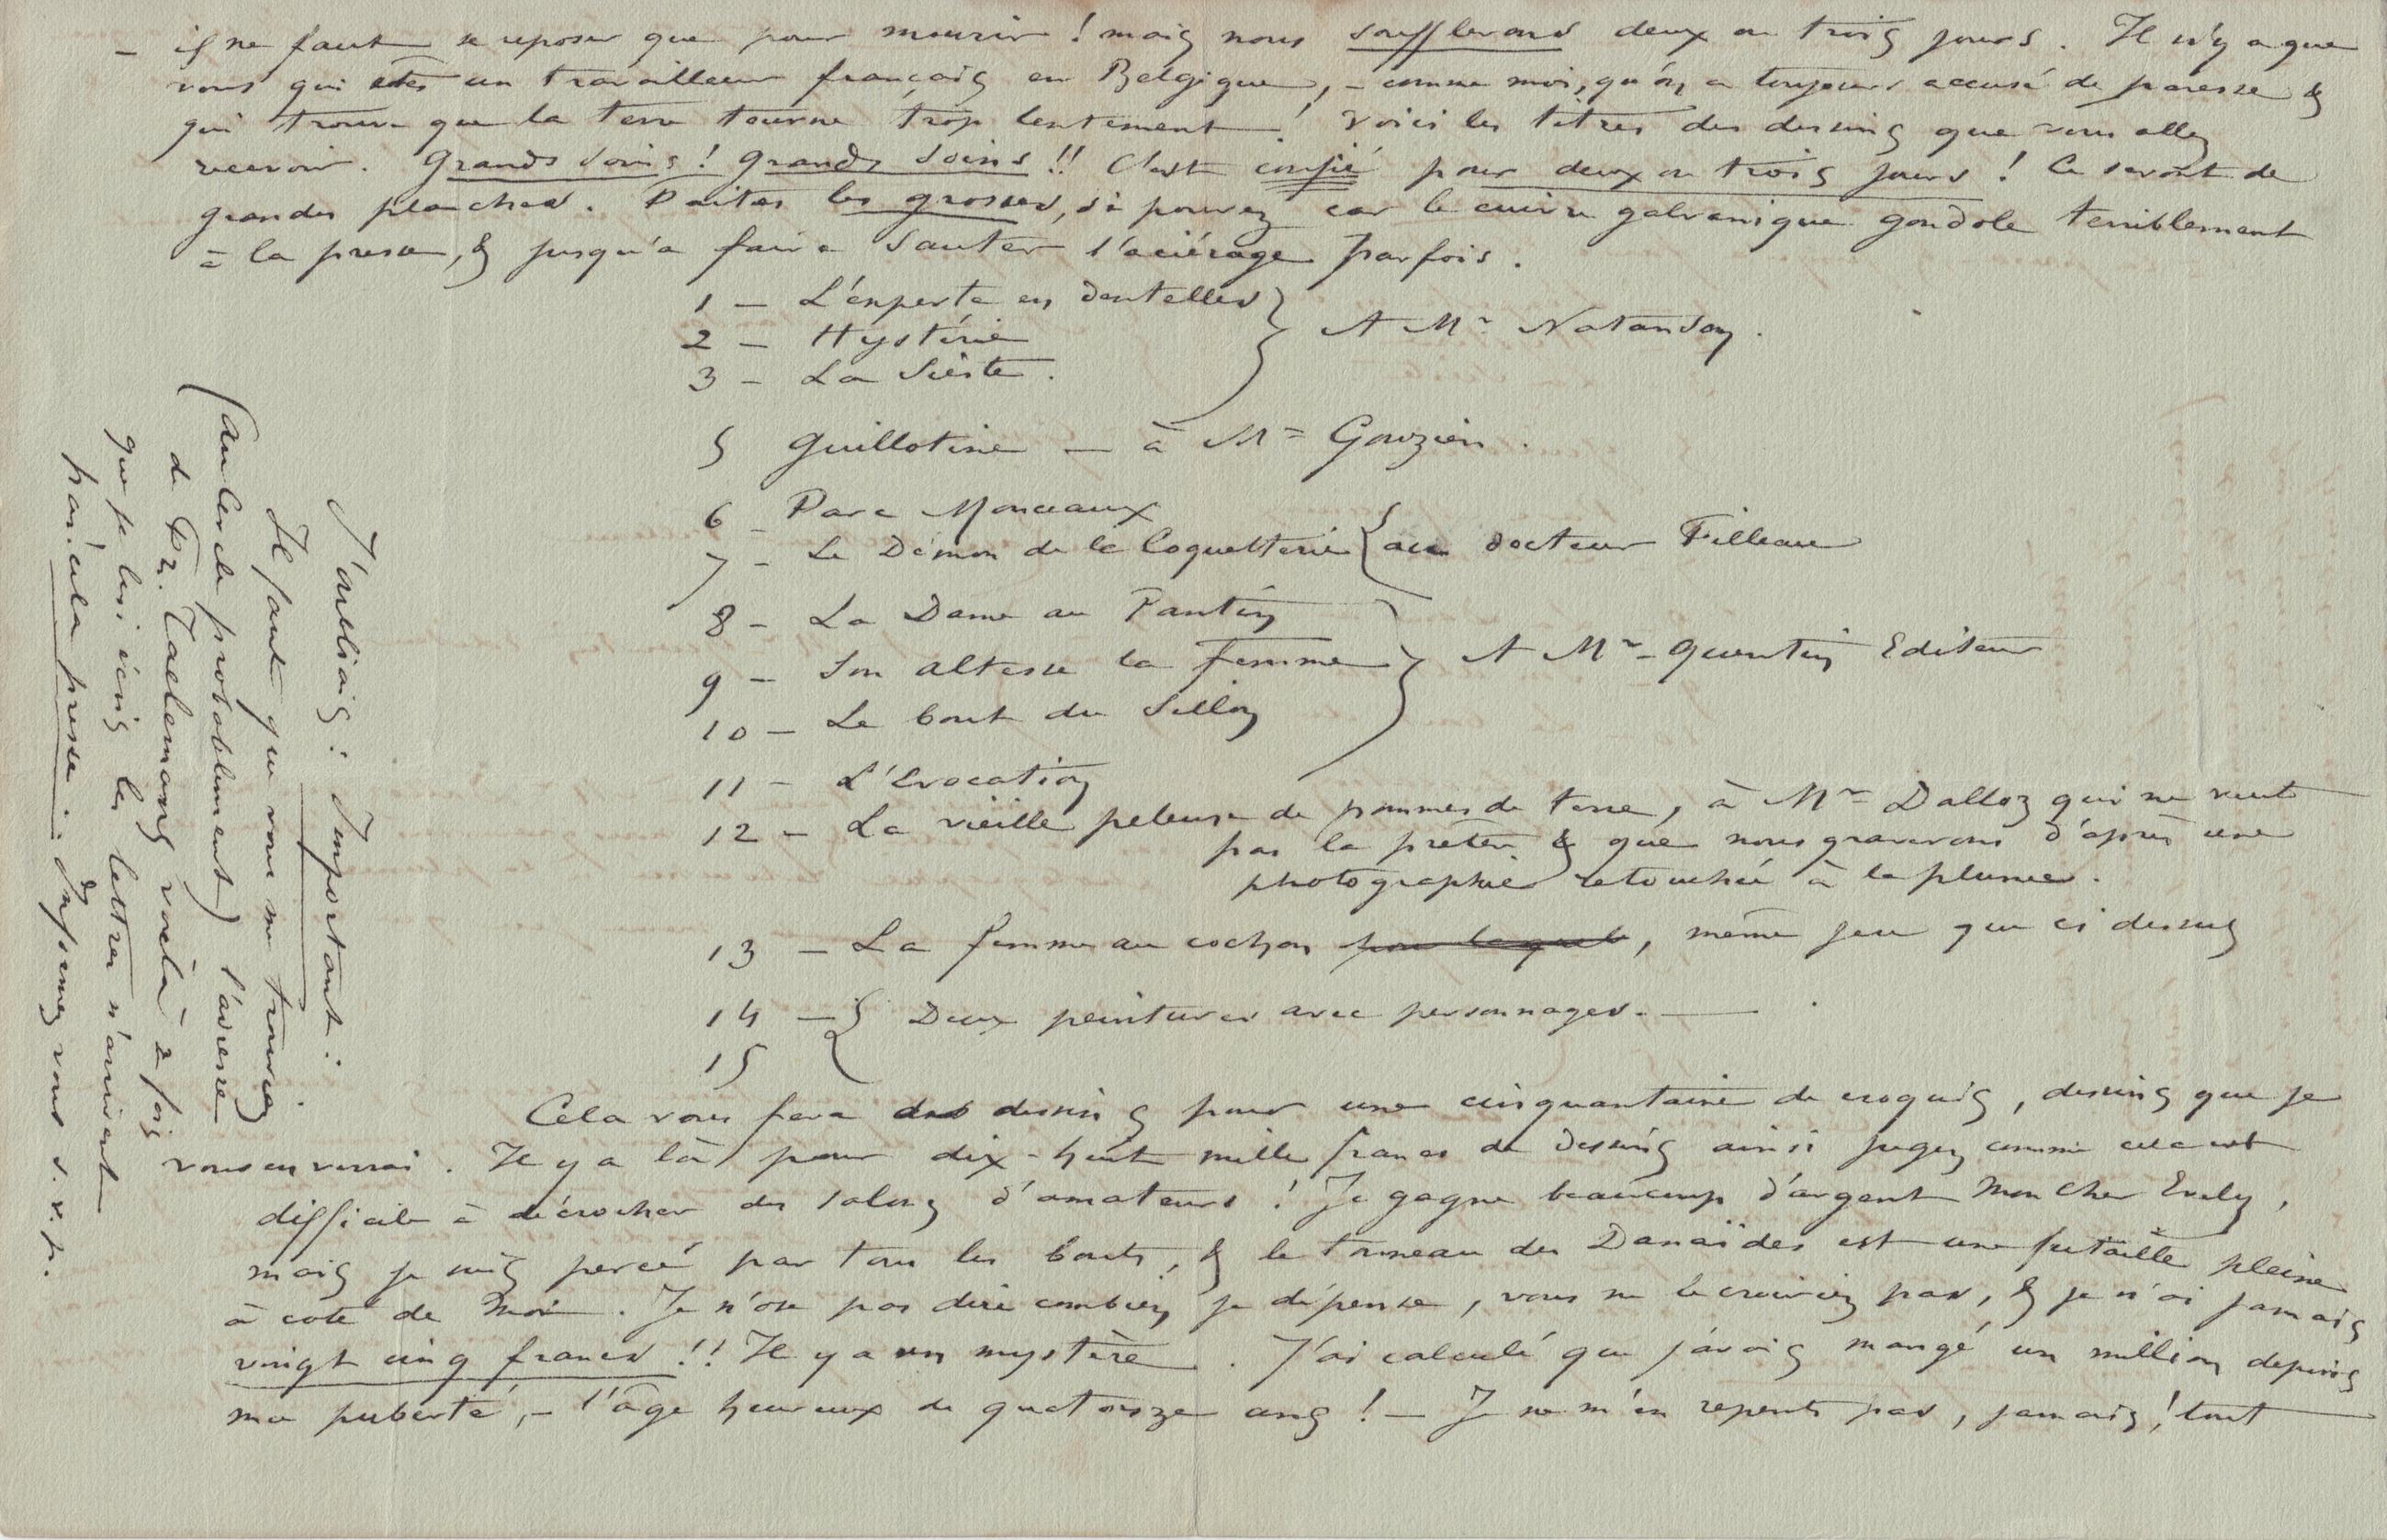 — il ne faut se reposer que pour mourir ! mais nous soufflerons deux ou trois jours. Il n'y a que
vous qui êtes un travailleur français en Belgique, – comme moi, qu'on a toujours accusé de paresse &
qui trouve que la terre tourne trop lentement ! Voici les titres des dessins que vous allez
recevoir. Grands soins ! Grands soins !! C'est confié pour deux ou trois jours ! Ce seront de
grandes planches. Faites les grosses, si pouvez car le cuivre galvanique gondole terriblement
à la presse, & jusqu'à faire sauter l'aciérage parfois.
1 — L'experte en dentelles
2 — Hystérie
3 — La Sieste.
A Mr Natanson.
5 Guillotine — à Mr Gouzien.
6 – Parc Monceaux
7 – Le Démon de la Coquetterie
au docteur Filleau
8 – La Dame au Pantin
9 – Son altesse la femme
10 – Le bout du Sillon
A Mr Quantin Editeur
11 – L'Evocation
12 – La vieille peleuse de pommes de terre, à Mr Dalloz qui ne veut
pas la prêter & que nous graverons d'après une
photographie retouchée à la plume.
13 – La femme au cochon pour laquelle, même jeu que ci dessus
14 – Deux peintures avec personnages. —
15
Cela vous fera des dessins pour une cinquantaine de croquis, dessins que je
vous enverrai. Il y a là pour dix-huit mille francs de dessins ainsi jugez comme cela est
difficile à décrocher des salons d'amateurs ! Je gagne beaucoup d'argent mon cher Evely,
mais je suis percé par tous les bouts, & le tonneau des Danaïdes est une futaille pleine
à coté de moi. Je n'ose pas dire combien je dépense, vous ne le croiriez pas, & je n'ai jamais
vingt cinq francs !! Il y a un mystère. J'ai calculé que j'avais mangé un million depuis
ma puberté, – l'âge heureux de quatorze ans ! – Je ne m'en repents pas, jamais ! tout
J'oubliais : Important :
Il faut que vous me trouviez
(au Cercle probablement) l'adresse
de Fr. Taelemans voilà 2 fois
que je lui écris les lettres n'arrivent
pas. & cela presse : Informez vous s.v.p.